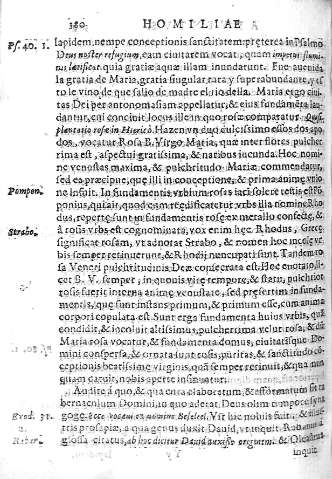 180 HOMILIAE
Ps. 40. 1. lapidem, nempe conceptionis sanctitatem: preterea in Psalmo
Deus noster refugium, eam ciuitatem vocat, quam impetus flumi-
nis laetificat, quia gratiae aquae illam inundarunt. Fue auenida
la gratia de Maria, gratia singular, rara y superabundante, y es-
to le vino de que salio de madre el rio della. Maria ergo ciui-
tas Dei per antonomasiam appellatur, & eius fundamēta lau-
dantur, cui concinit locus ille in quo rosae comparatur
plantatio rosae in Hierico. Hazen vn duo dulcissimo essos dos apo-
dos, vocatur Rosa B. Virgo Maria, quae inter flores pulcher-
rima est, aspectu gratissima, & naribus iucunda. Hoc nomi-
ne venustas maxima, & pulchritudo Mariae commendatur,
sed ea praecipue, quae illi in conceptione, & prima animae
Pompon. ne infuit. In fundamentis vrbium rosas iaci solere testis est Pō-
ponius, qui ait, quod cum aedificaretur vrbs illa nomine Rho-
dus, repertae sunt in fundamentis rosae ex metallo confectae, &
Strabo. à rosis vrbs est cognominata, vox enim haec Rhodus, Graecè
significat rosam, vt adnotat Strabo, & nomen hoc incolae vr-
bis semper retinuerunt, & Rhodij nuncupati sunt. Tandem ro-
sa Veneri pulchritudinis Deae consecrata est. Hoc
cet B. V. semper, in quouis vitae tempore, & statu, pulchrior
rosis fuerit interna animae venustate, sed praesertim in funda-
mentis, quae sunt instans primum, & primum esse, cum anima
corpori copulata est. Sunt ergo fundamenta huius vrbis, quā
condidit, & incoluit altissimus, pulcherrima velut rosa, &
Maria rosa vocatur, & fundamenta domus, ciuitatisque Do-
mini conspersa, & ornata sunt rosis, puritas, & sanctitudo cō-
ceptionis beatissimae virginis, quā semper retinuit, & qua nun-
quam caruit, nobis aperte insinuatur.
Audite à quo, & qua cura elaboratum, & efformatum sit ta-
bernaculum Domini, in quo aderat Deus olim tempore syna
Exod. 31. gogae. Ecce vocaui ex nomine Beseleel. Vir hic nobilis fuit, & illu-
2. stris prosapiae, a qua genus duxit Dauid, vt inquit Rabanus
Raber. glossa citatus, ab hoc dicitur Dauid duxisse originem. & Oleastra
inquit